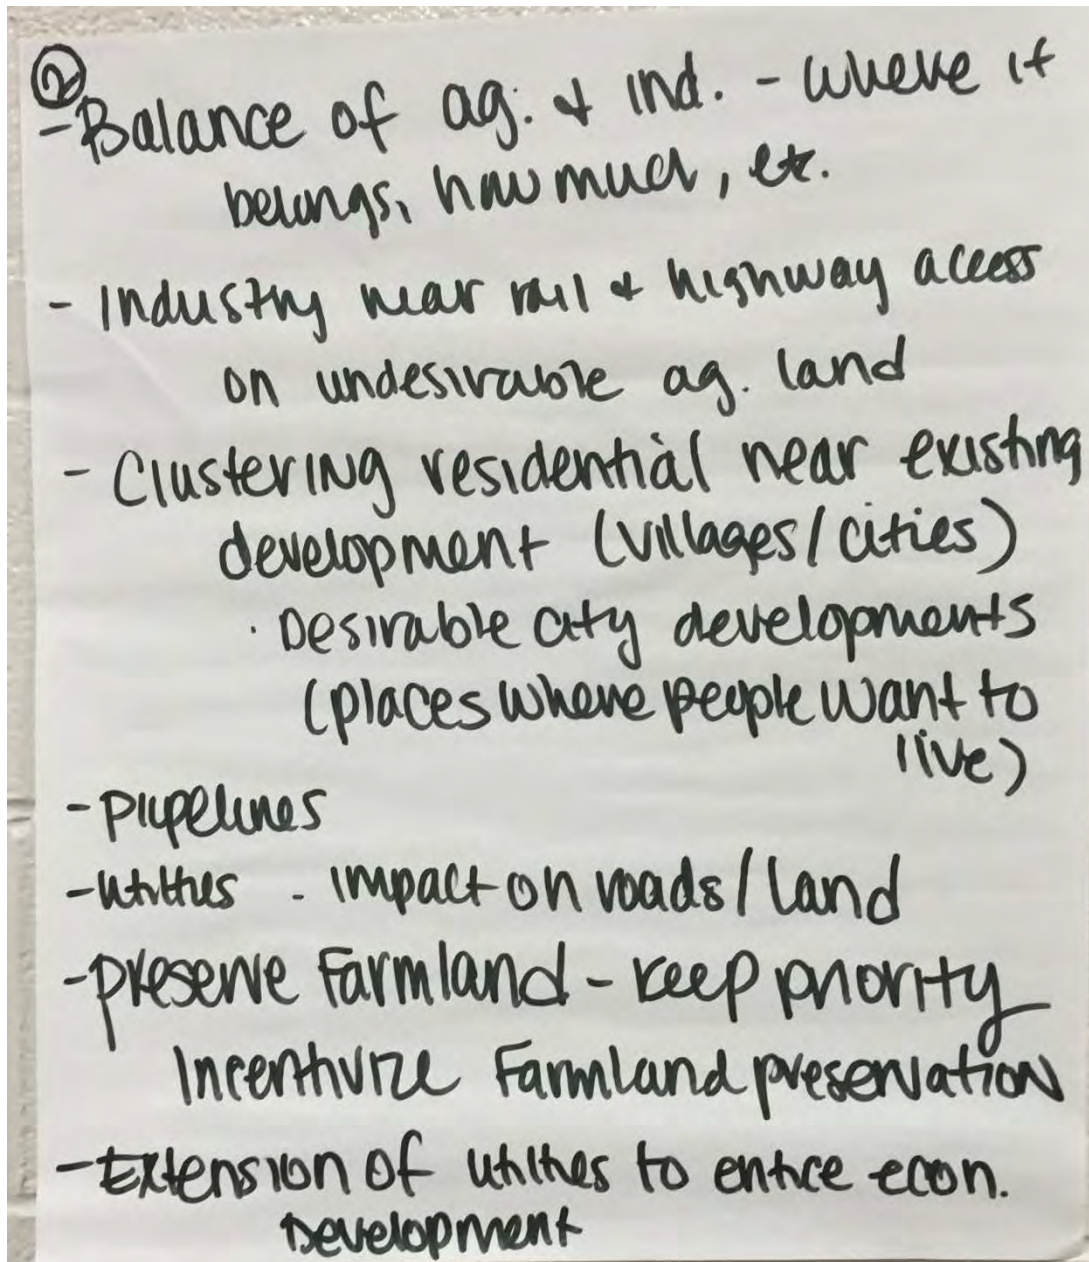 ②
- Balance of ag. & ind. - where it
belongs, how much, etc.
- Industry near rail & highway access
on undesirable ag. land
- Clustering residential near existing
development (villages/cities)
· Desirable city developments
(places where people want to
live)
- pipelines
- utilities - impact on roads/land
- preserve Farmland - keep priority
Incentivize Farmland preservation
- Extension of utilities to entice econ.
Development